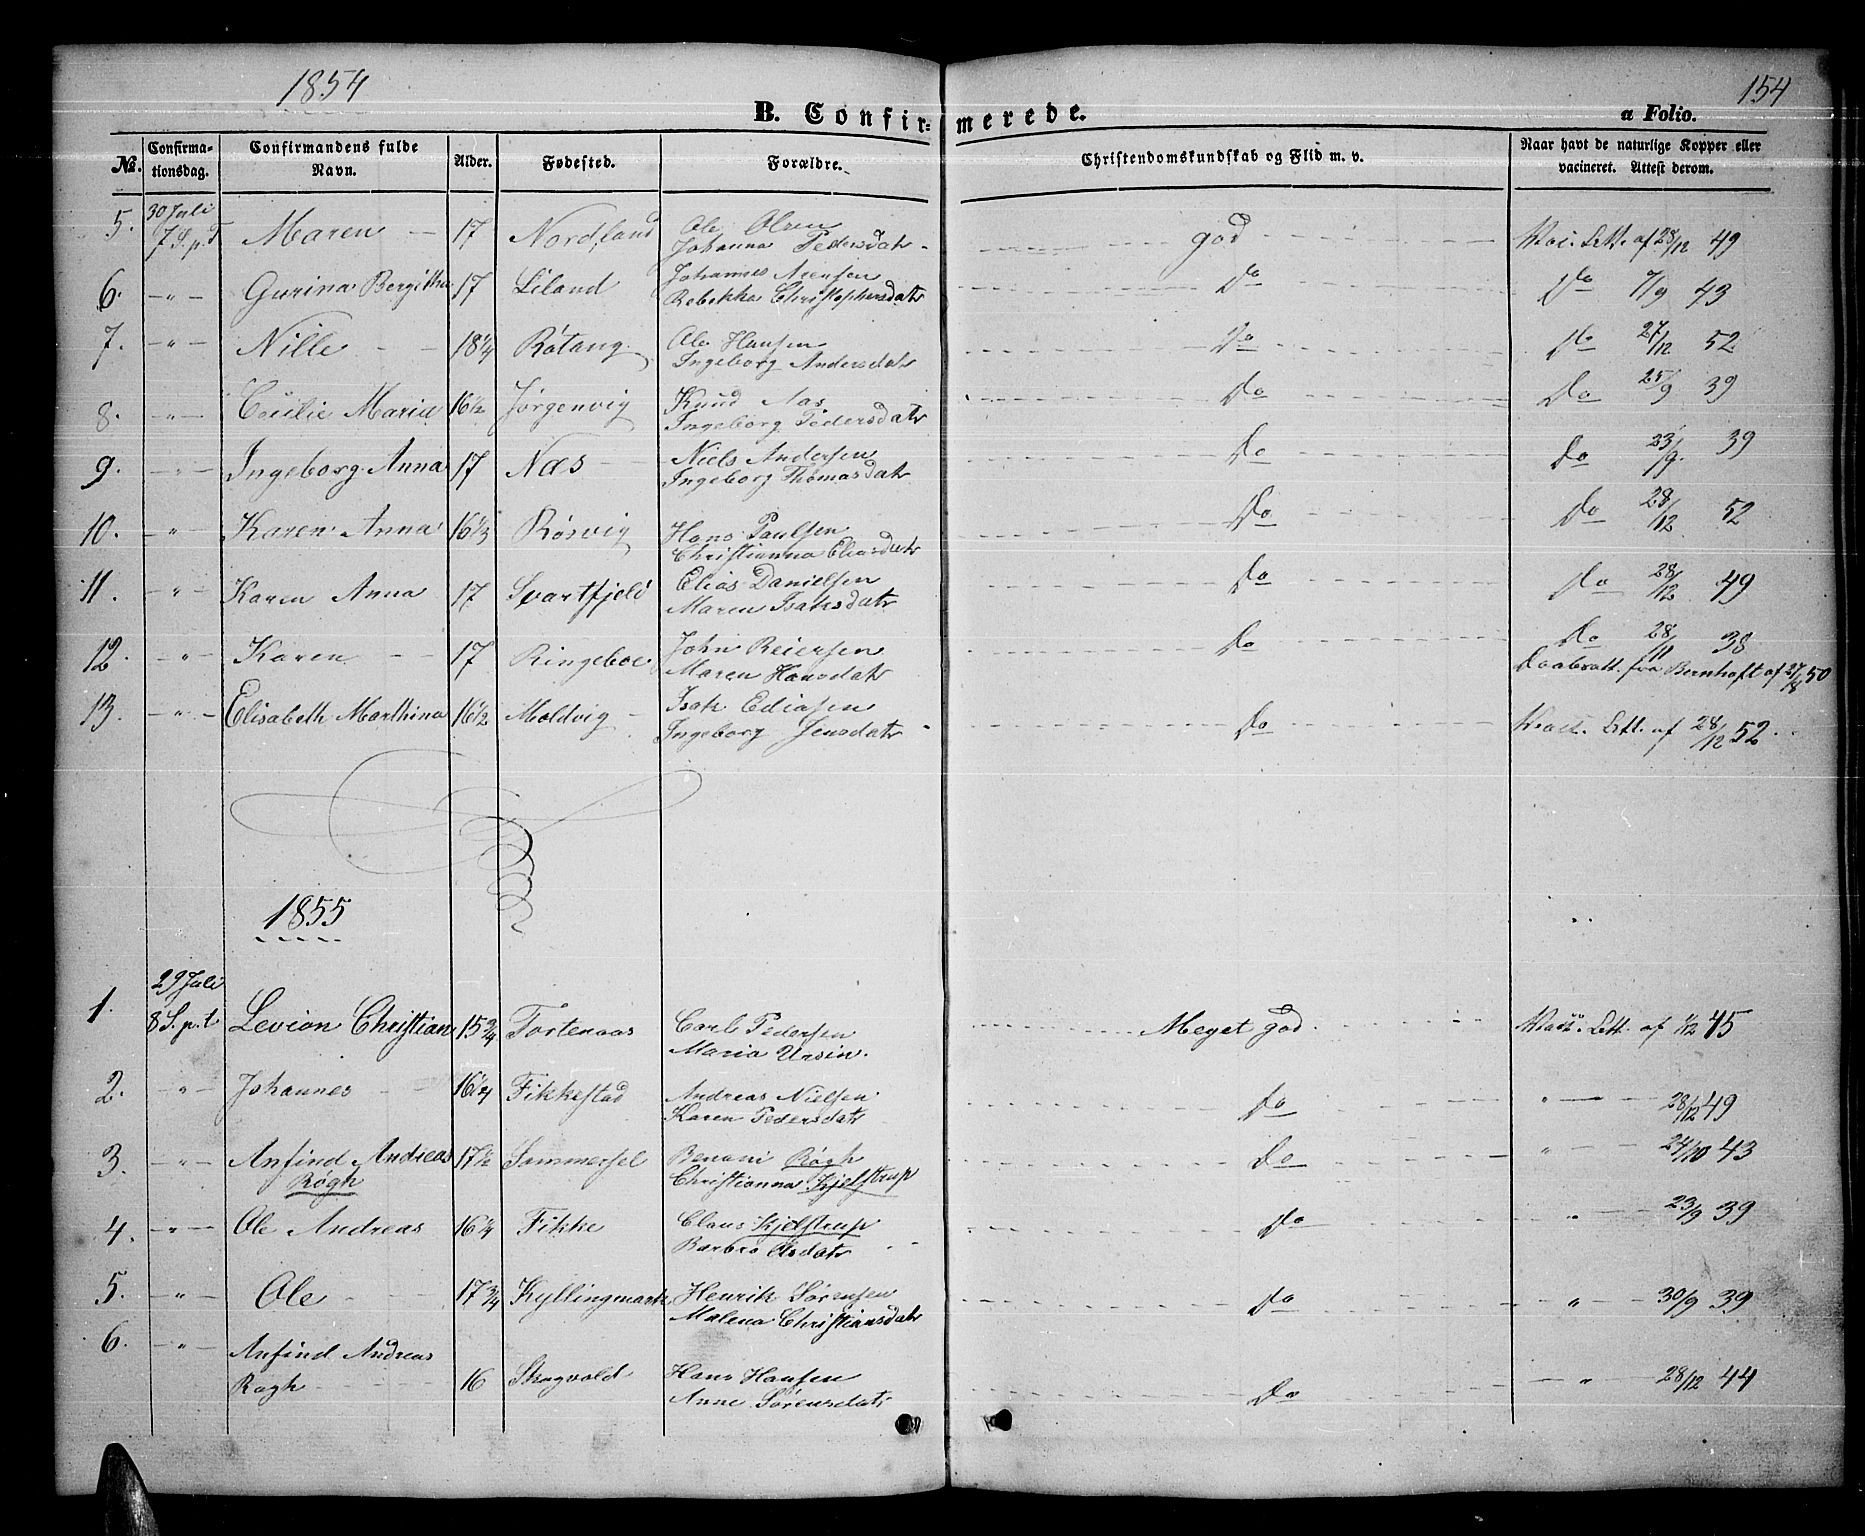 1854
154
B. Confir= merede.
a Folio.
No. Confirma-tionsdag. Confirmandens fulde Navn. Alder. Fødested. Forældre. Christendomskundskab og Flid m. v. Naar havt de naturlige Kopper eller vacineret. Attest derom.
5. 30 Juli 7 S. p. T Maren 17 Nordland Ole Olsen god Vac. Att. af 28/12 49
Johanna Pedersdatr
6. " Gurina Bergitha 17 Liland Johannes Arensen Do Do 7/9 43
Rebekka Christophersdatr
7. " Nille 18 1/4 Røtang Ole Hansen Do Do 27/12 52
Ingeborg Andersdatr
8. " Cecilie Maria 16 1/2 Jørgenvig Knud Aas Do Do 25/9 39
Ingeborg Pedersdatr
9. " Ingeborg Anna 17 Næs Niels Andersen Do Do 23/9 39
Ingeborg Thomasdatr
10. " Karen Anna 16 1/3 Røsvig Hans Paulsen Do Do 28/12 52
Christianna Eliasdatr
11. " Karen Anna 17 Svartfjeld Elias Danielsen Do Do 28/12 49
Maren Isaksdatr
12. " Karen 17 Ringeboe John Reiersen Do Do 28/11 38
Maren Hansdatr Daabsatt. fra Bernhoft af 27/8 50
13. " Elisabeth Marthina 16 1/2 Moldvig Isak Ediasen Do Vact. Att. af 28/12 52
Ingeborg Jensdatr
1855
1. 29 Juli 8 S. p. t Levion Christian 15 3/4 Tortenaas Carl Pedersen Meget god Vacc. Att. af 1/12 45
Maria Ursin.
2. " Johannes 16 1/4 Fikkestad Andreas Nielsen Do " 28/12 49
Karen Pedersdatr
3. " Anfind Andreas 17 1/2 Sommersel Benoni Røgh Do " 24/10 43
Røgh Christianna Kjelstrup
4. " Ole Andreas 16 1/4 Fikke Claus Kjelstrup Do " 23/9 39
Barbro Olsdatr
5. " Ole 17 3/4 Kyllingmark Henrik Sørensen Do " 30/9 39
Malena Christiansdatr
6. " Anfind Andreas
Rogh 16 Skogvold Hans Hansen Do " 28/12 44
Anne Sørensdatr